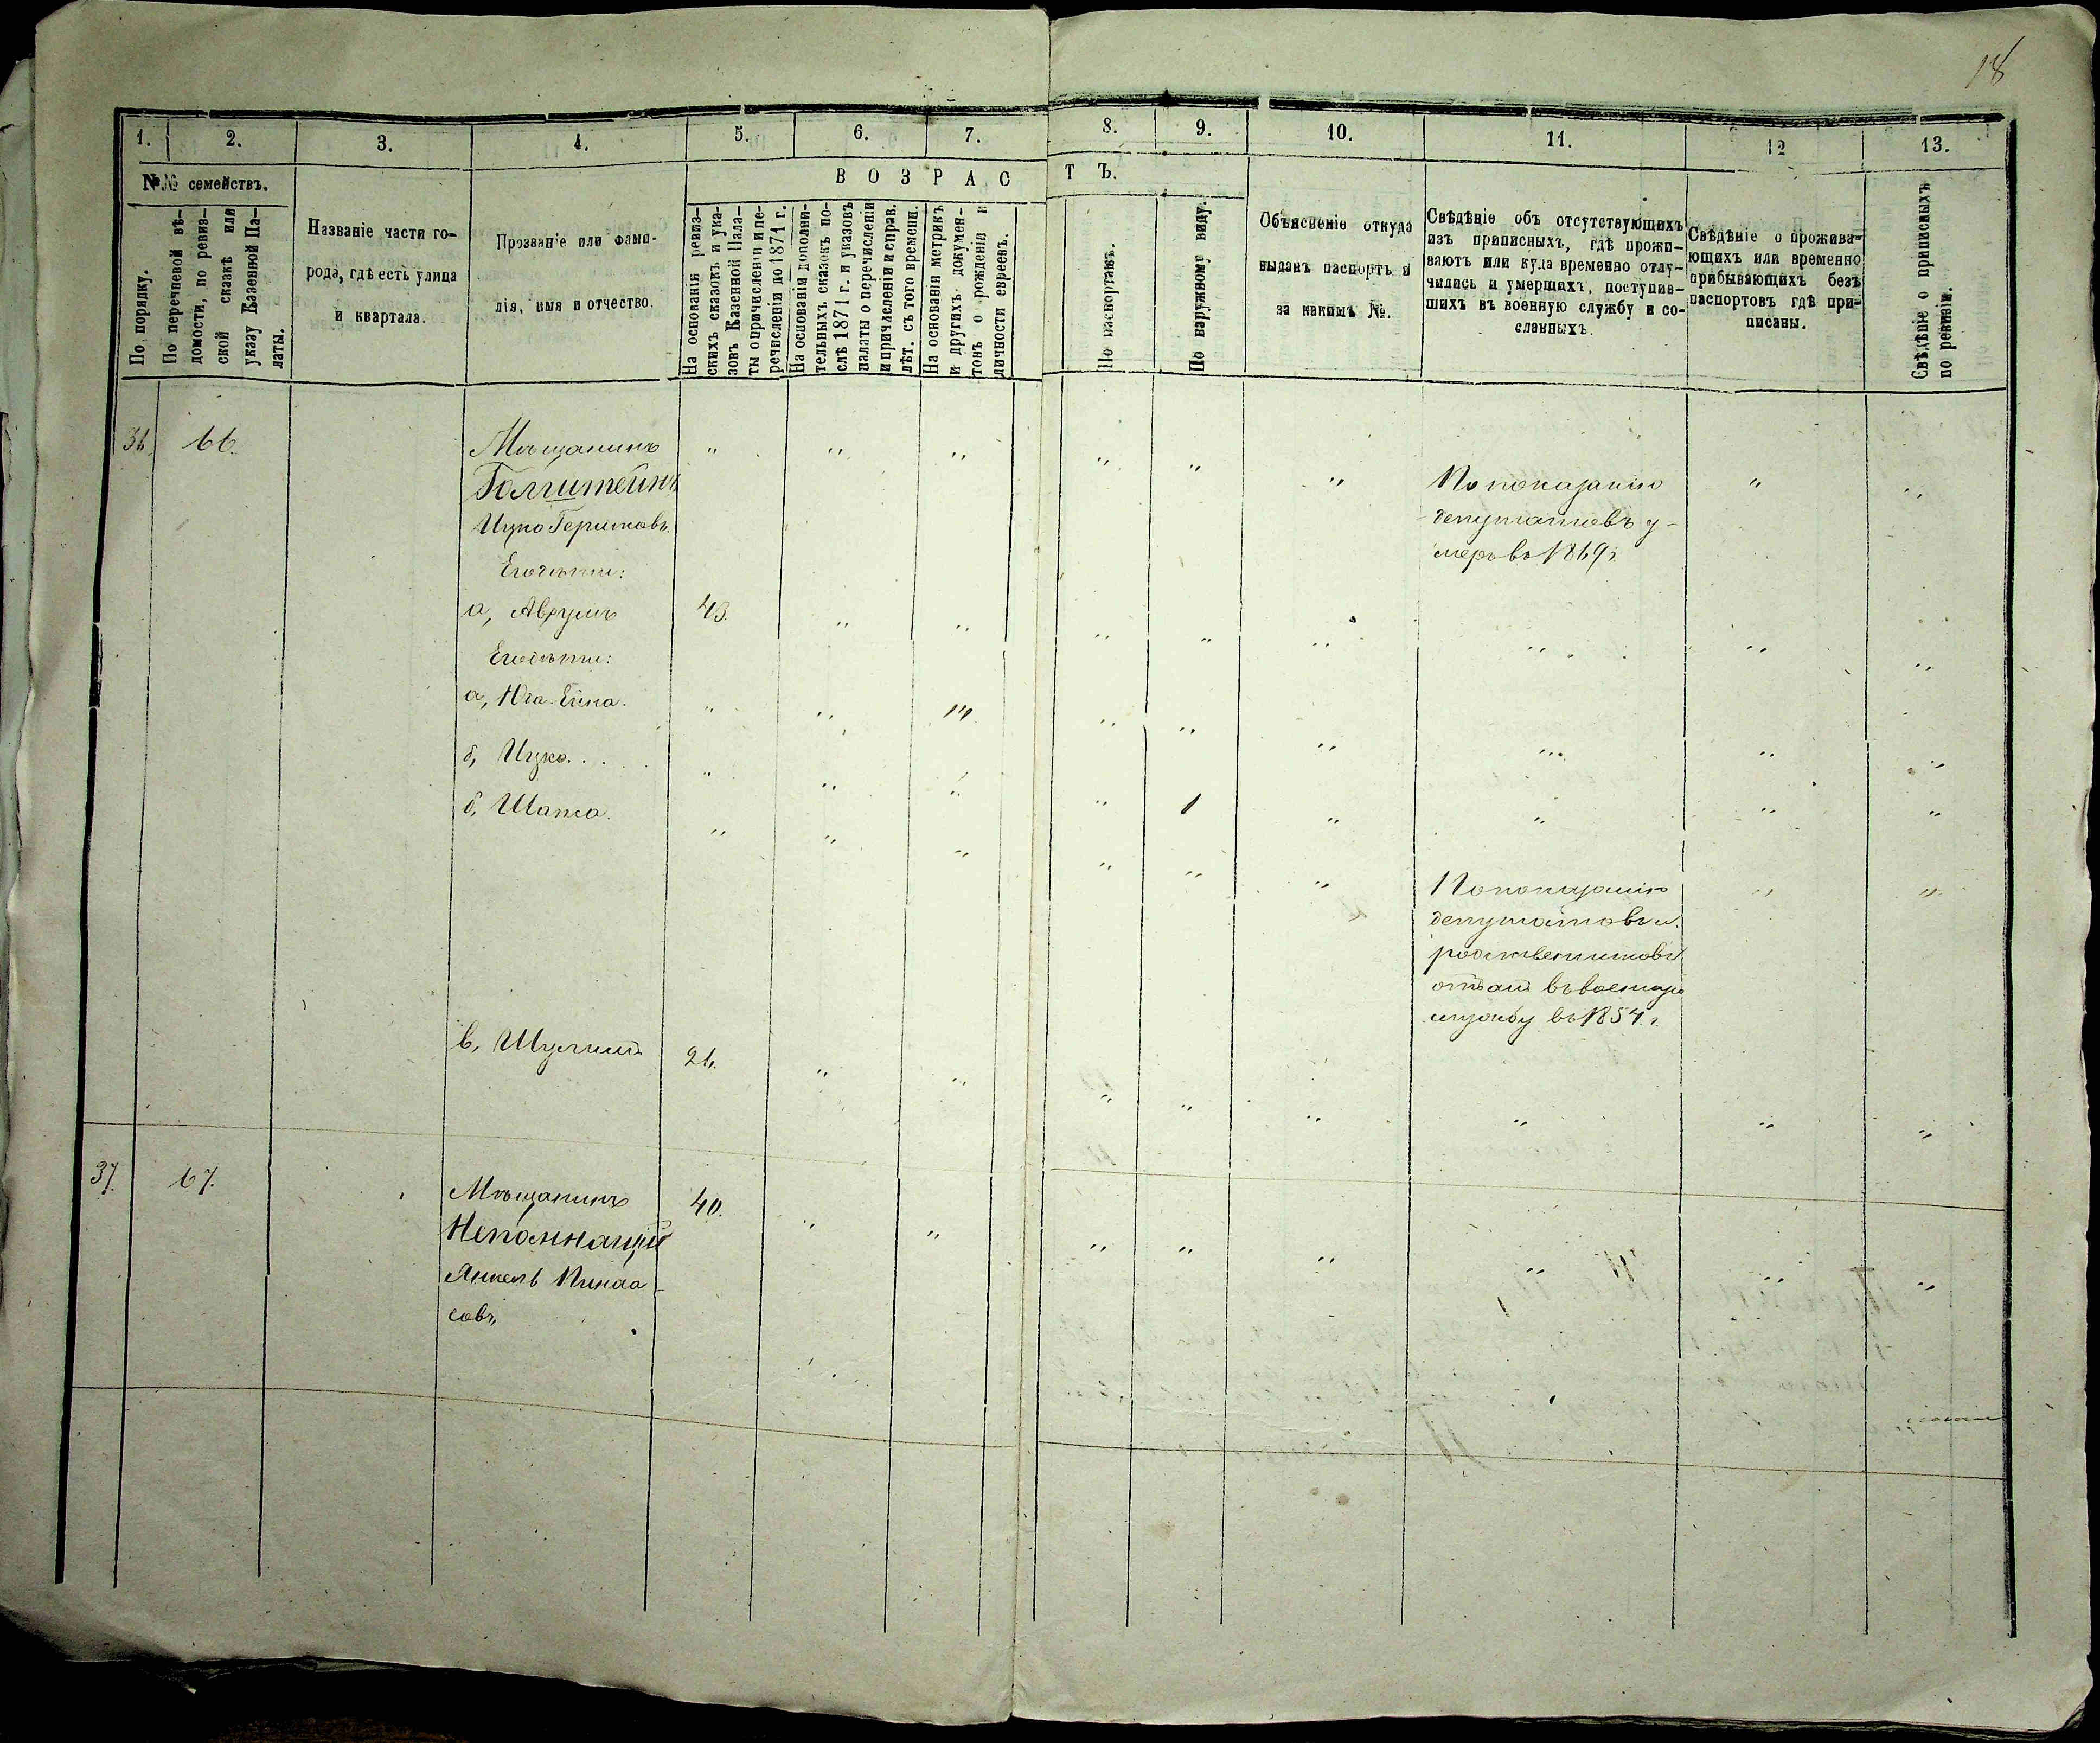 18
1. 2. 3. 4. 5. 6. 7. 8. 9. 10. 11. 12 13.
№№ семействъ.
В О З Р А С Т Ъ.
По порядку.
По перечневой вѣ-
домости, по ревиз-
ской сказкѣ или
указу Казенной Па-
латы.
Названіе части го-
рода, гдѣ есть улица
и квартала.
Прозваніе или фами-
лія, имя и отчество.
На основаніи ревиз-
скихъ сказокъ и ука-
зовъ Казенной Пала-
ты о причисленіи и пе-
речисленіи до 1871 г.
На основаніи дополни-
тельныхъ сказокъ по-
слѣ 1871 г. и указовъ
палаты о перечисленіи
и причисленіи и справ.
лѣт. съ того времени.
На основаніи метрикъ
и другихъ докумен-
товъ о рожденіи и
личности евреевъ.
По паспортамъ.
По наружному виду.
Объясненіе откуда
выданъ паспортъ и
за какимъ №.
Свѣдѣніе объ отсутствующихъ
изъ приписныхъ, гдѣ прожи-
ваютъ или куда временно отлу-
чились и умершихъ, поступив-
шихъ въ военную службу и со-
сланныхъ.
Свѣдѣніе о прожива-
ющихъ или временно
прибывающихъ безъ
паспортовъ гдѣ при-
писаны.
Свѣдѣніе о приписныхъ
по ревизіи.
36. 66. Мѣщанинъ " " " " " " По показанію " "
Голштейнъ депутатовъ у-
Ицко Гершковъ меръ въ 1869 г.
Его дѣти:
а, Аврумъ 43. " " " " " " " "
Его дѣти:
а, " " 14. " " " " " "
б, Ицко. " " " " 1 " " " "
б, Шапса. " " " " " " По показанію " "
депутатовъ и
родственниковъ
отданъ въ военную
службу въ 1854 г.
в, 26. " " " " " " " "
37. 67. Мѣщанинъ 40. " " " " " " " "
Непомнящій
Янкель Пинха-
совъ